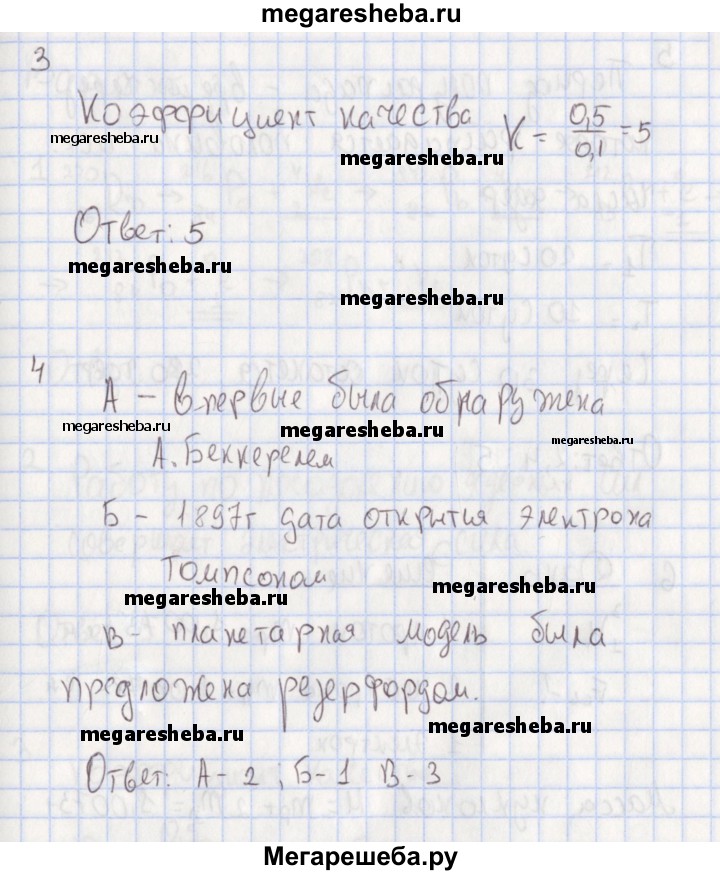 megaresheba.ru
3
Коэффициент качества K = 0,5/0,1 = 5
megaresheba.ru
megaresheba.ru
Ответ: 5
megaresheba.ru
megaresheba.ru
4
А – впервые была обнаружена
megaresheba.ru
megaresheba.ru
megaresheba.ru
А. Беккерелем
Б – 1897г дата открытия электрона
Томпсоном
megaresheba.ru
megaresheba.ru
В – планетарная модель была
предложена резерфордом.
megaresheba.ru
megaresheba.ru
Ответ: А - 2 ; Б - 1 В - 3
Мегарешеба.ру